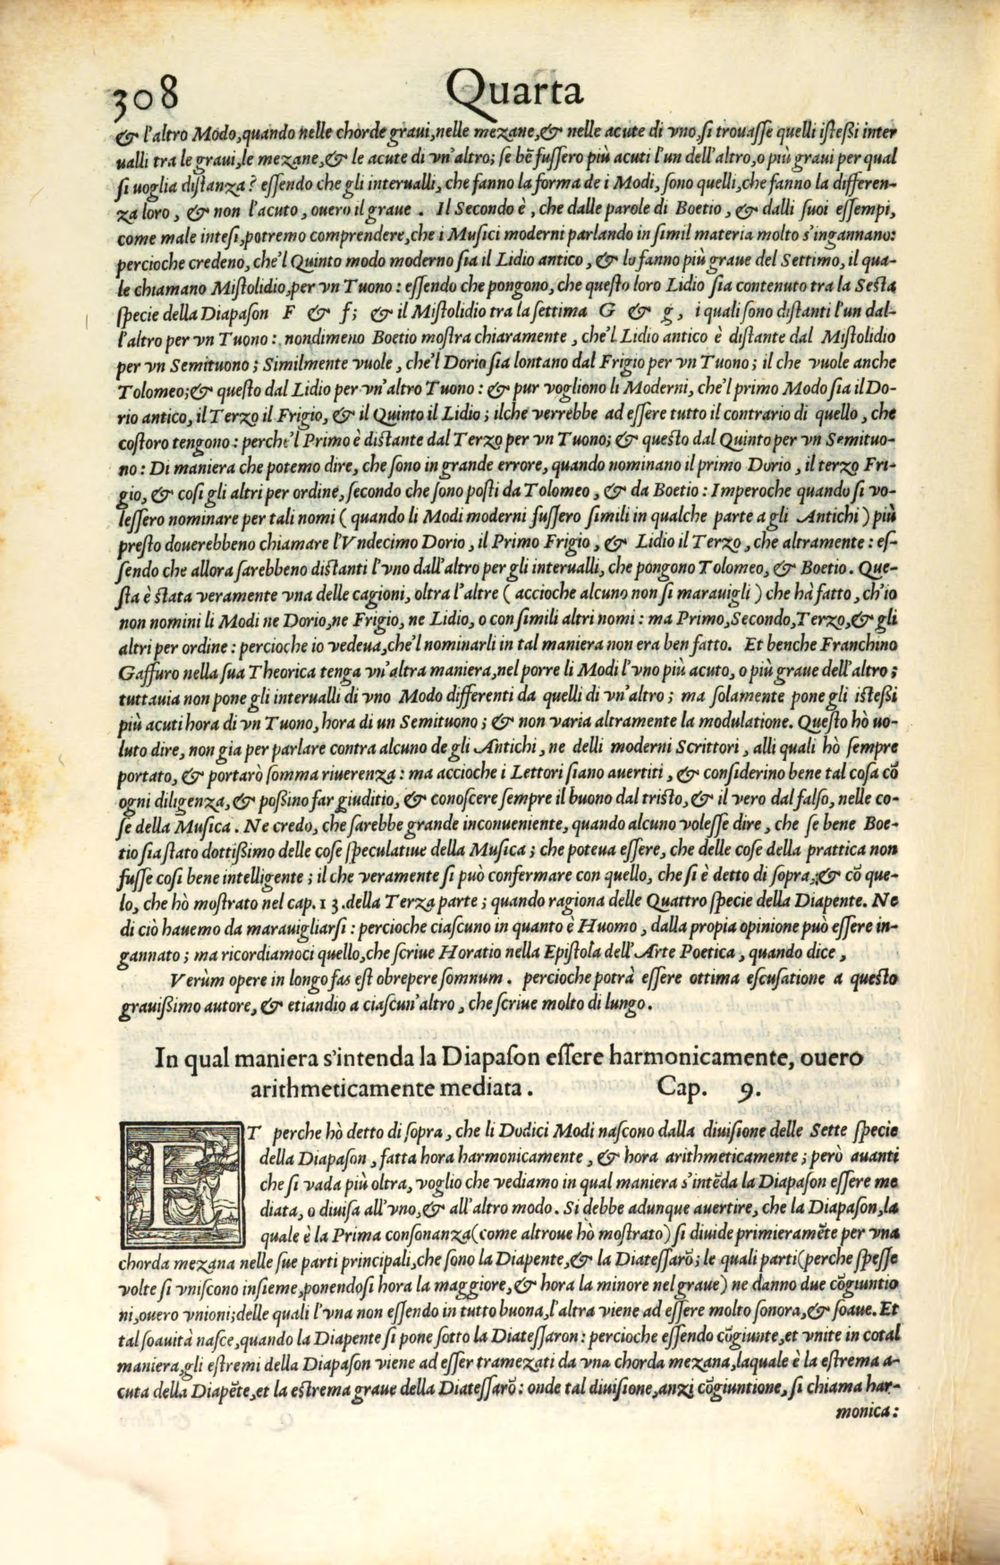 308 Quarta
& l'altro Modo, quando nelle chorde graui, nelle mezane, & nelle acute di vno, si trouasse quelli istessi inter
ualli tra le graui, le mezane, & le acute di vn'altro; se bẽ fussero più acuti l'un dell'altro, o più graui per qual
si uoglia distanza? essendo che gli interualli, che fanno la forma de i Modi, sono quelli, che fanno la differen-
za loro, & non l'acuto, ouero il graue. Il Secondo è, che dalle parole di Boetio, & dalli suoi essempi,
come male intesi, potremo comprendere, che i Musici moderni parlando in simil materia molto s'ingannano:
percioche credeno, che'l Quinto modo moderno sia il Lidio antico, & lo fanno più graue del Settimo, il qua-
le chiamano Mistolidio, per vn Tuono: essendo che pongono, che questo loro Lidio sia contenuto tra la Sesta
specie della Diapason F & f; & il Mistolidio tra la settima G & g, i quali sono distanti l'un dal-
l'altro per vn Tuono: nondimeno Boetio mostra chiaramente, che'l Lidio antico è distante dal Mistolidio
per vn Semituono; Similmente vuole, che'l Dorio sia lontano dal Frigio per vn Tuono; il che vuole anche
Tolomeo; & questo dal Lidio per vn'altro Tuono: & pur vogliono li Moderni, che'l primo Modo sia il Do-
rio antico, il Terzo il Frigio, & il Quinto il Lidio; ilche verrebbe ad essere tutto il contrario di quello, che
costoro tengono: perche'l Primo è distante dal Terzo per vn Tuono; & questo dal Quinto per vn Semituo-
no: Di maniera che potemo dire, che sono in grande errore, quando nominano il primo Dorio, il terzo Fri-
gio, & cosi gli altri per ordine, secondo che sono posti da Tolomeo, & da Boetio: Imperoche quando si vo-
lessero nominare per tali nomi (quando li Modi moderni fussero simili in qualche parte a gli Antichi) più
presto douerebbeno chiamare l'Vndecimo Dorio, il Primo Frigio, & Lidio il Terzo, che altramente: es-
sendo che allora sarebbeno distanti l'vno dall'altro per gli interualli, che pongono Tolomeo, & Boetio. Que-
sta è stata veramente vna delle cagioni, oltra l'altre (accioche alcuno non si marauigli) che hà fatto, ch'io
non nomini li Modi ne Dorio, ne Frigio, ne Lidio, o con simili altri nomi: ma Primo, Secondo, Terzo, & gli
altri per ordine: percioche io vedeua, che'l nominarli in tal maniera non era ben fatto. Et benche Franchino
Gaffuro nella sua Theorica tenga vn'altra maniera, nel porre li Modi l'vno più acuto, o più graue dell'altro;
tuttauia non pone gli interualli di vno Modo differenti da quelli di vn'altro; ma solamente pone gli istessi
più acuti hora di vn Tuono, hora di un Semituono; & non varia altramente la modulatione. Questo hò uo-
luto dire, non gia per parlare contra alcuno de gli Antichi, ne delli moderni Scrittori, alli quali hò sempre
portato, & portarò somma riuerenza: ma accioche i Lettori siano auertiti, & considerino bene tal cosa cõ
ogni diligenza, & possino far giuditio, & conoscere sempre il buono dal tristo, & il vero dal falso, nelle co-
se della Musica. Ne credo, che sarebbe grande inconueniente, quando alcuno volesse dire, che se bene Boe-
tio sia stato dottissimo delle cose speculatiue della Musica; che poteua essere, che delle cose della prattica non
fusse cosi bene intelligente; il che veramente si può confermare con quello, che si è detto di sopra; & cõ que-
lo, che hò mostrato nel cap. 13. della Terza parte; quando ragiona delle Quattro specie della Diapente. Ne
di ciò hauemo da marauigliarsi: percioche ciascuno in quanto è Huomo, dalla propia opinione può essere in-
gannato; ma ricordiamoci quello, che scriue Horatio nella Epistola dell'Arte Poetica, quando dice,
Verùm opere in longo fas est obrepere somnum. percioche potrà essere ottima escusatione a questo
grauissimo autore, & etiandio a ciascun'altro, che scriue molto di lungo.
In qual maniera s'intenda la Diapason essere harmonicamente, ouero
arithmeticamente mediata. Cap. 9.
ET perche hò detto di sopra, che li Dodici Modi nascono dalla diuisione delle Sette specie
della Diapason, fatta hora harmonicamente, & hora arithmeticamente; però auanti
che si vada più oltra, voglio che vediamo in qual maniera s'intẽda la Diapason essere me
diata, o diuisa all'vno, & all'altro modo. Si debbe adunque auertire, che la Diapason, la
quale è la Prima consonanza (come altroue hò mostrato) si diuide primieramẽte per vna
chorda mezana nelle sue parti principali, che sono la Diapente, & la Diatessarõ; le quali parti (perche spesse
volte si vniscono insieme, ponendosi hora la maggiore, & hora la minore nel graue) ne danno due cõgiuntio
ni, ouero vnioni; delle quali l'vna non essendo in tutto buona, l'altra viene ad essere molto sonora, & soaue. Et
tal soauità nasce, quando la Diapente si pone sotto la Diatessaron: percioche essendo cõgiunte, et vnite in cotal
maniera, gli estremi della Diapason viene ad esser tramezati da vna chorda mezana, laquale è la estrema a-
cuta della Diapẽte, et la estrema graue della Diatessarõ: onde tal diuisione, anzi cõgiuntione, si chiama har-
monica: